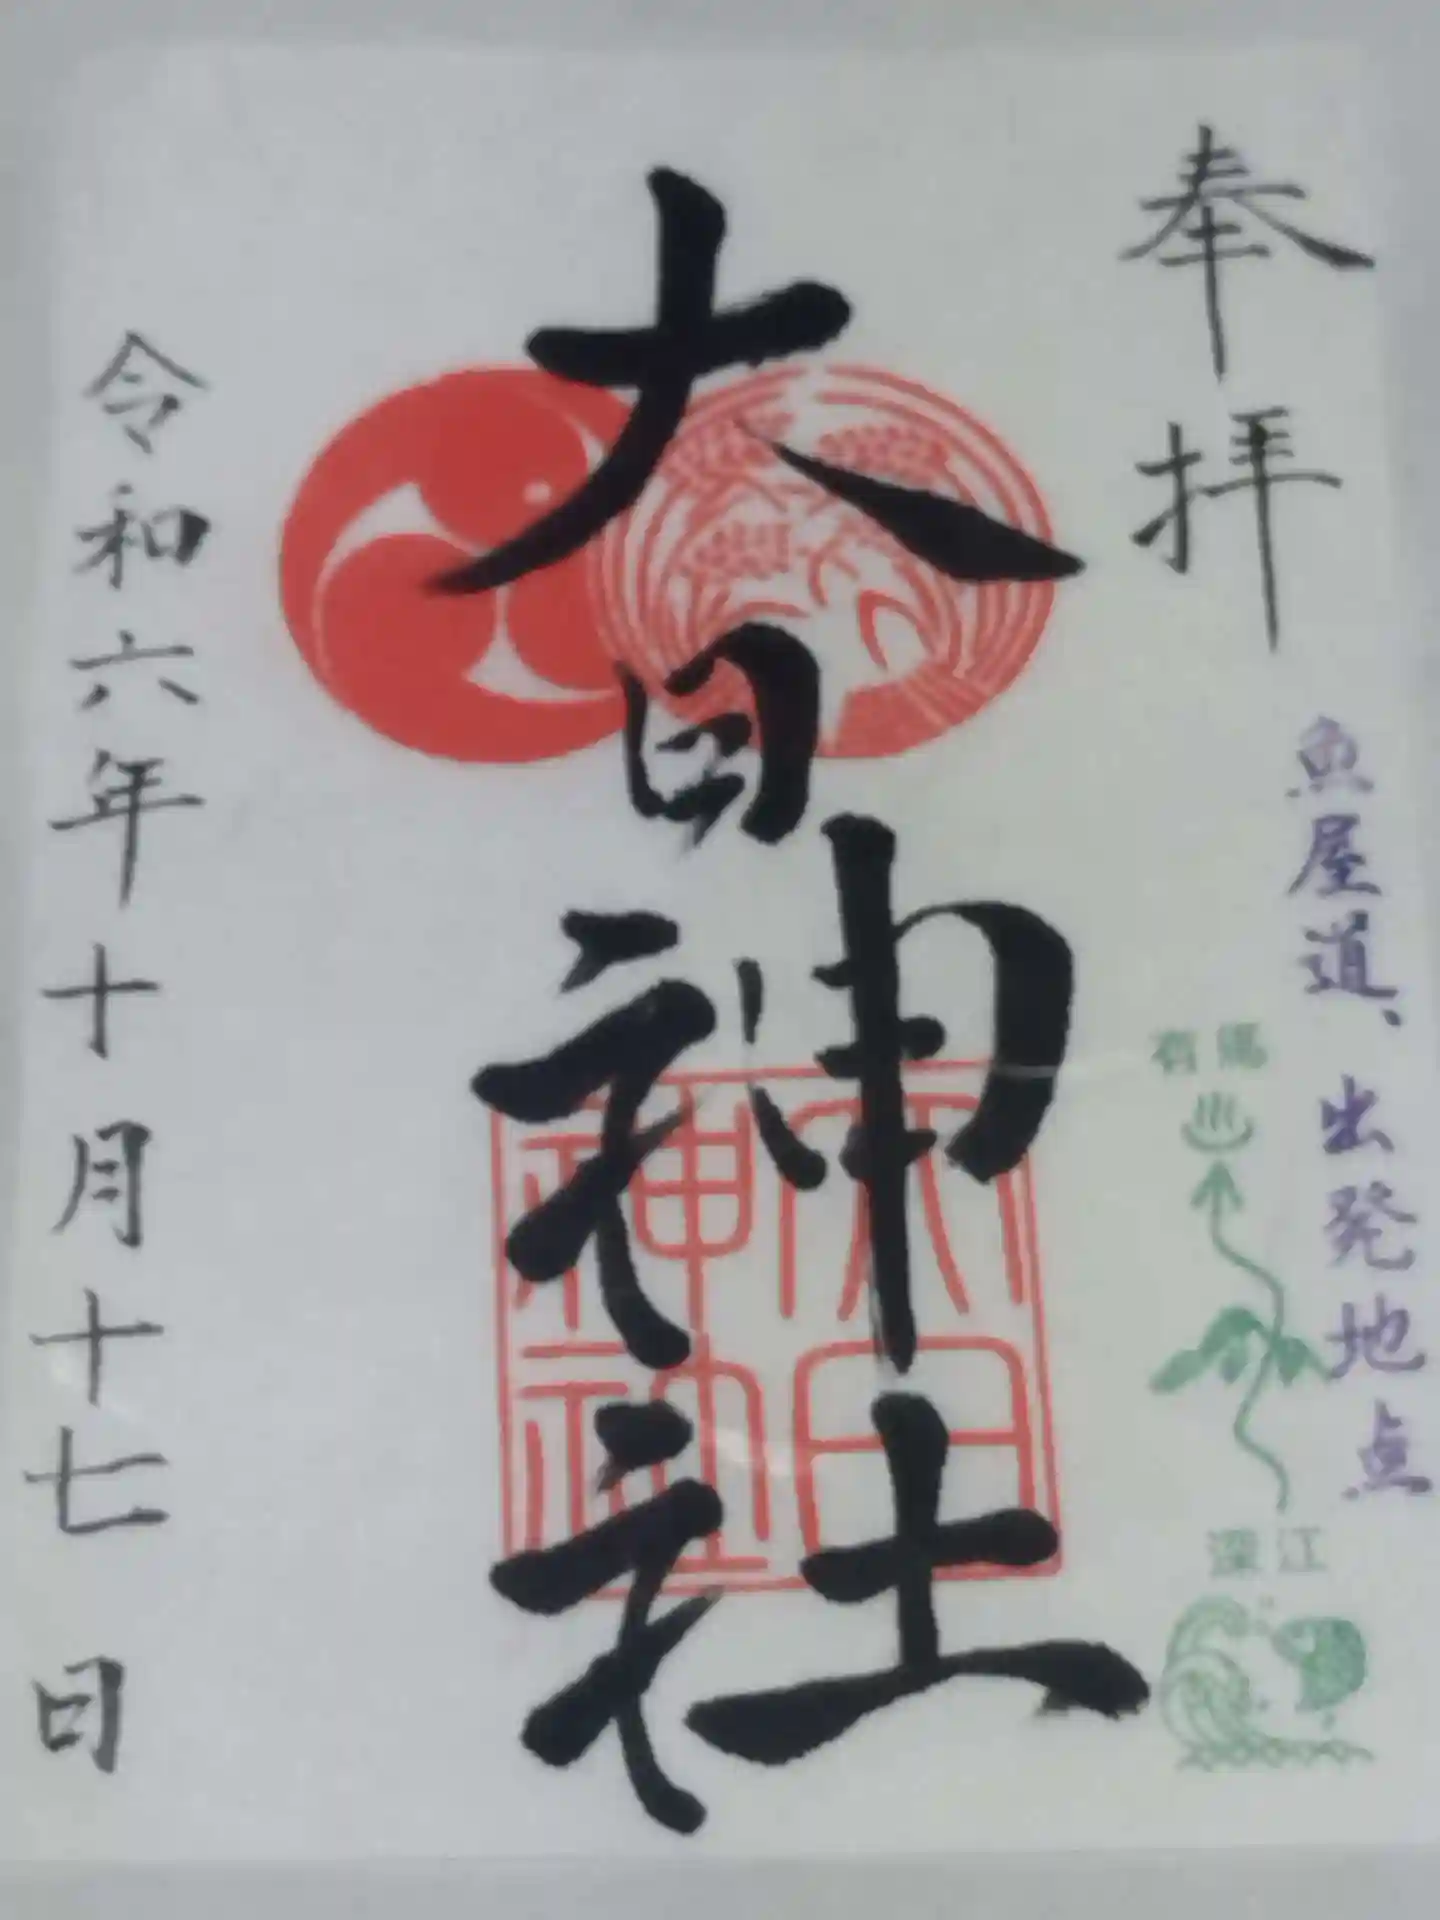 奉拝
魚屋道、出発地点
有馬
深江
大日神社
大日
神社
令和六年十月十七日